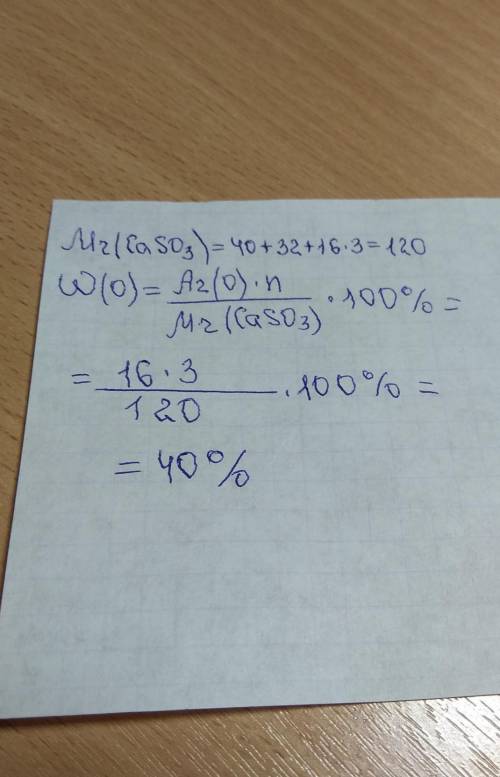 Mr(CaSO₃)=40+32+16·3=120
W(O)= Ar(O)·n / Mr(CaSO₃) ·100%=
= 16·3 / 120 ·100%=
=40%